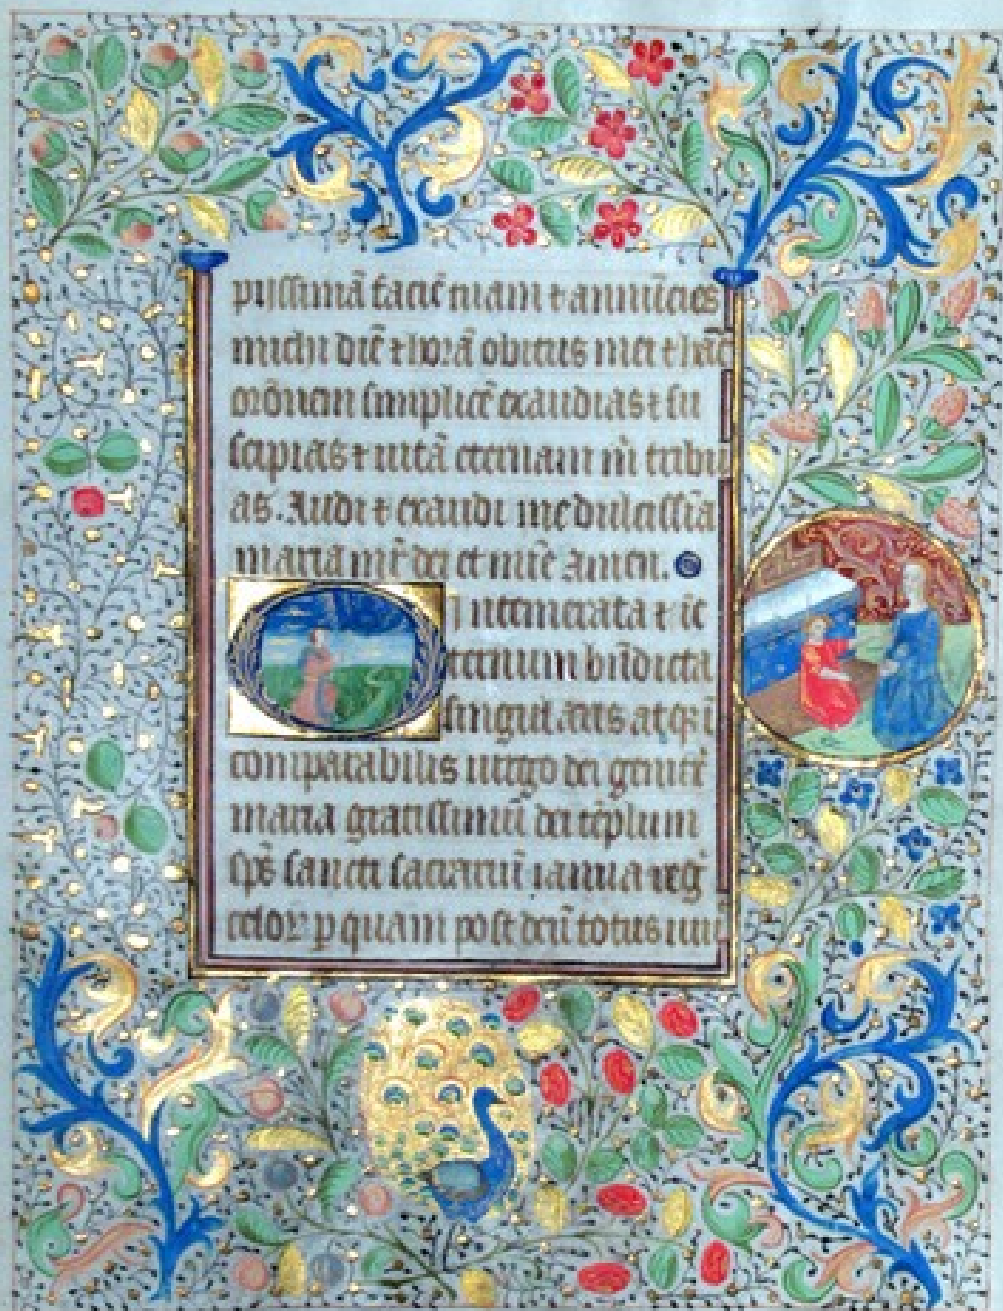 pijssimā faciē tuam ⁊ annūcies
michi diē ⁊ horā obitus mei ⁊ hāc
orōnem simplicē exaudias ⁊ su
scipias ⁊ uitā eternam m̄ tribu
as. Audi ⁊ exaudi me dulcissīa
maria mr̄ dei et mīe Amen.
O Intemerata ⁊ ī e
ternum bn̄dicta
singularis atqꝫ ī
comparabilis uirgo dei genitˣ
maria gratissimū dei tēplum
sp̄s sancti sacrariū ianua reg
celoꝝ p quam post deū totus